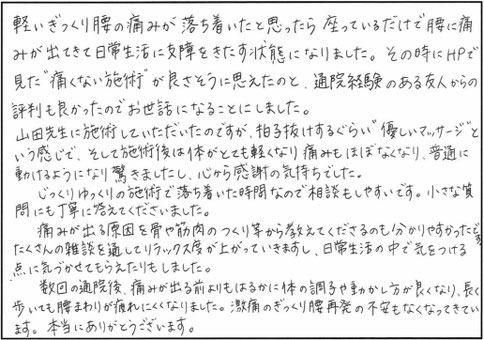 軽いぎっくり腰の痛みが落ち着いたと思ったら座っているだけで腰に痛
みが出てきて日常生活に支障をきたす状態になりました。その時にHPで
見た"痛くない施術"が良さそうに思えたのと、通院経験のある友人からの
評判も良かったのでお世話になることにしました。
山田先生に施術していただいたのですが、拍子抜けするぐらい"優しいマッサージ"と
いう感じで、そして施術後は体がとても軽くなり痛みもほぼなくなり、普通に
動けるようになり驚きましたし、心から感謝の気持ちでした。
じっくりゆっくりの施術で落ち着いた時間なので相談もしやすいです。小さな質
問にも丁寧に答えてくださいました。
痛みが出る原因を骨や筋肉のつくり等から教えてくださるのも分かりやすかったです。
たくさんの雑談を通してリラックス度が上がっていきますし、日常生活の中で気をつける
点に気づかせてもらえたりもしました。
数回の通院後、痛みが出る前よりもはるかに体の調子や動かし方が良くなり、長く
歩いても腰まわりが疲れにくくなりました。激痛のぎっくり腰再発の不安もなくなってきてい
ます。本当にありがとうございます。